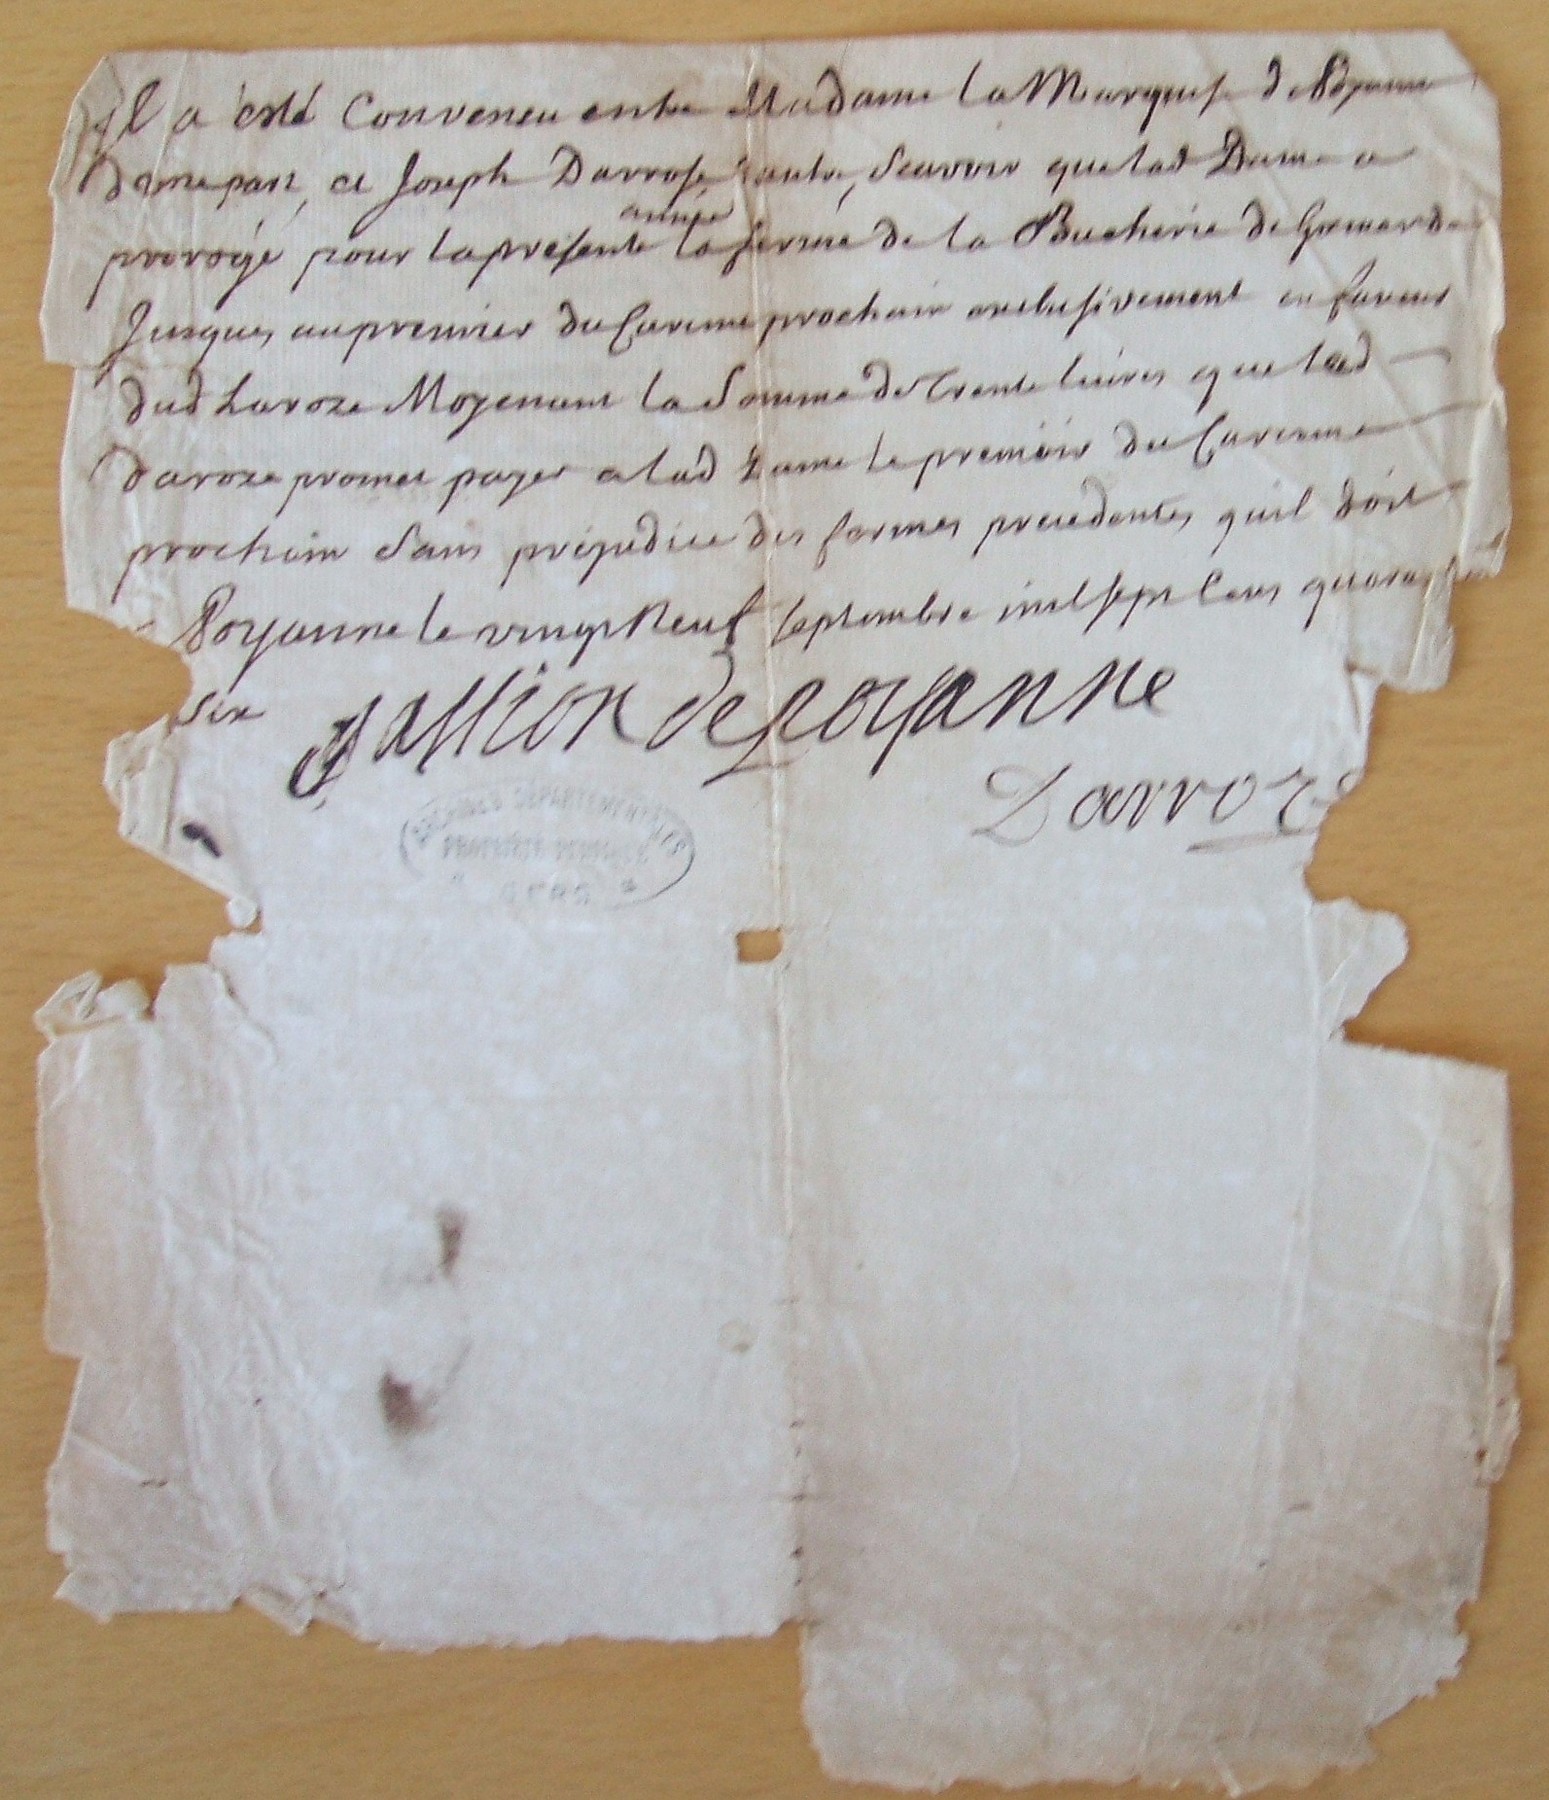 Il a esté Conveneu entre Madame la Marquise de Poyanne
dune part, et Joseph Darrose dautre, Scavoir que lad Dame a
prorogé pour la presente année la ferme de la Bucherie de Gamarde
Jusques au premier du Careme prochain exclusivement en faveur
dud Daroze Moyenant la Somme de Trente livres que led
daroze promet payer a lad Dame le premier du Careme
prochain Sans prejudice des fermes precedentes quil doit
Poyanne le vingt Neuf septembre mil sept Cens quarante
Six
Gassion de poyanne
Darroze
ARCHIVES DÉPARTEMENTALES
PROPRIÉTÉ PUBLIQUE
GERS